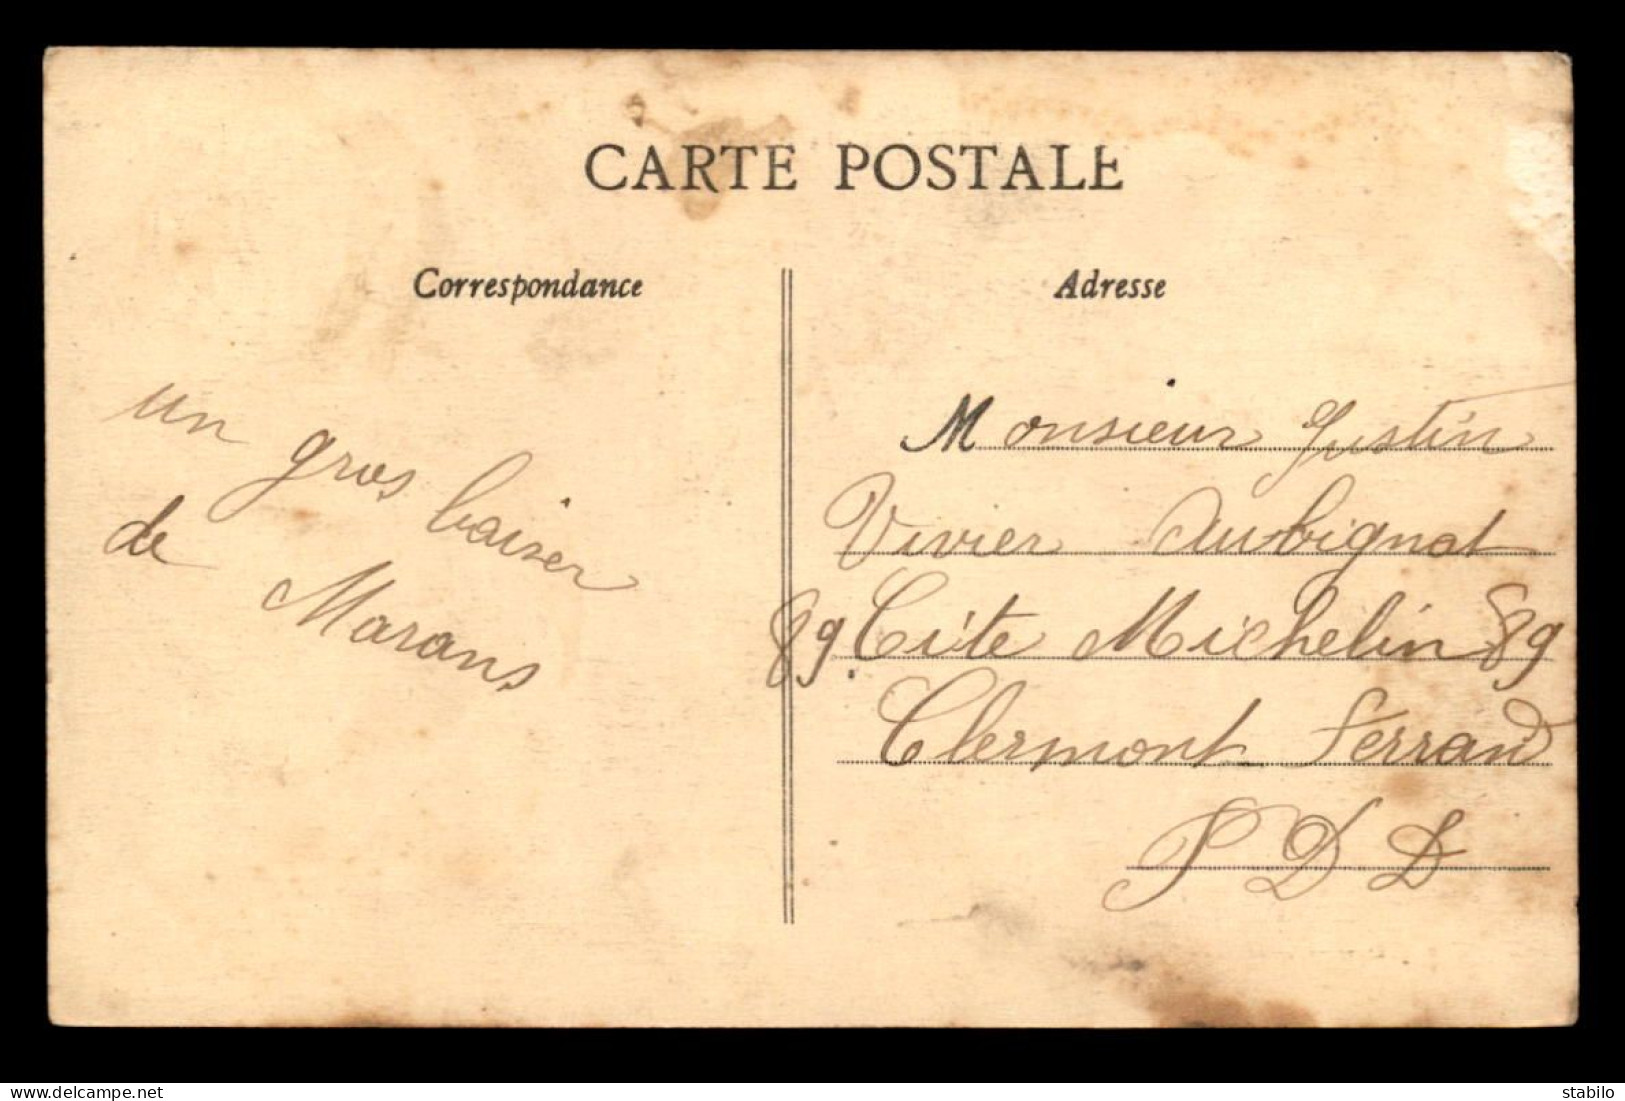 CARTE POSTALE
Correspondance
un gros baiser
de Marans
Adresse
Monsieur Justin
Vivier Aubignat
89 Cite Michelin 89
Clermont-Ferrand
P D D
delcampe.net
stabilo